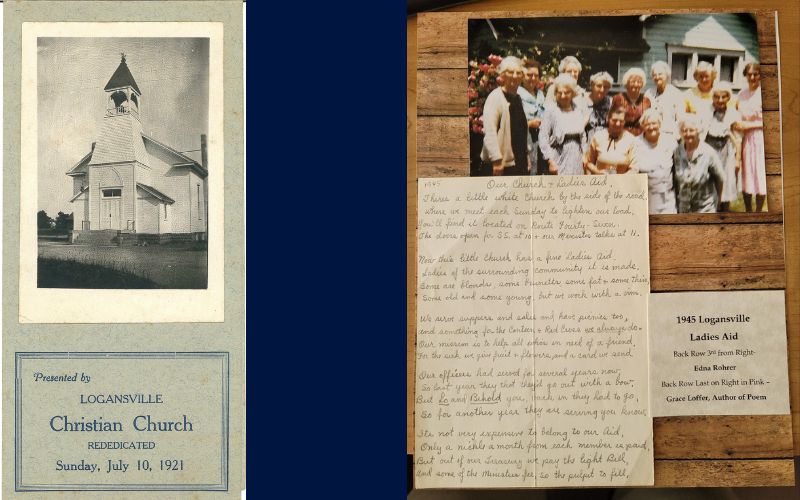 Presented by
LOGANSVILLE
Christian Church
REDEDICATED
Sunday, July 10, 1921
1945
Our Church & Ladies Aid.
Theres a little white Church by the side of the road,
where we meet each Sunday to lighten our load,
You'll find it located on Route Fourty-Seven.
The doors open for S.S. at 10 & our Minister talks at 11.
Now this little Church has a fine Ladies Aid,
Ladies of the surrounding community it is made.
Some are blonds, some brunetts, some fat & some thin,
Some old and some young, but we work with a vim.
We serve suppers and sales and have picnics too,
and something for the Canteen & Red Cross we always do.
Our mission is to help all when in need of a friend,
For the sick we give fruit & flowers, and a card we send.
Our officers had served for several years now,
So last year they that they'd go out with a bow.
But Lo and Behold you, back in they had to go,
So for another year they are serving you know.
It's not very expensive to belong to our Aid,
Only a nickle a month from each member is paid,
But out of our Treasury we pay the light Bill,
and some of the Ministers fee, so the pulpit to fill,
1945 Logansville
Ladies Aid
Back Row 3rd from Right-
Edna Rohrer
Back Row Last on Right in Pink –
Grace Loffer, Author of Poem